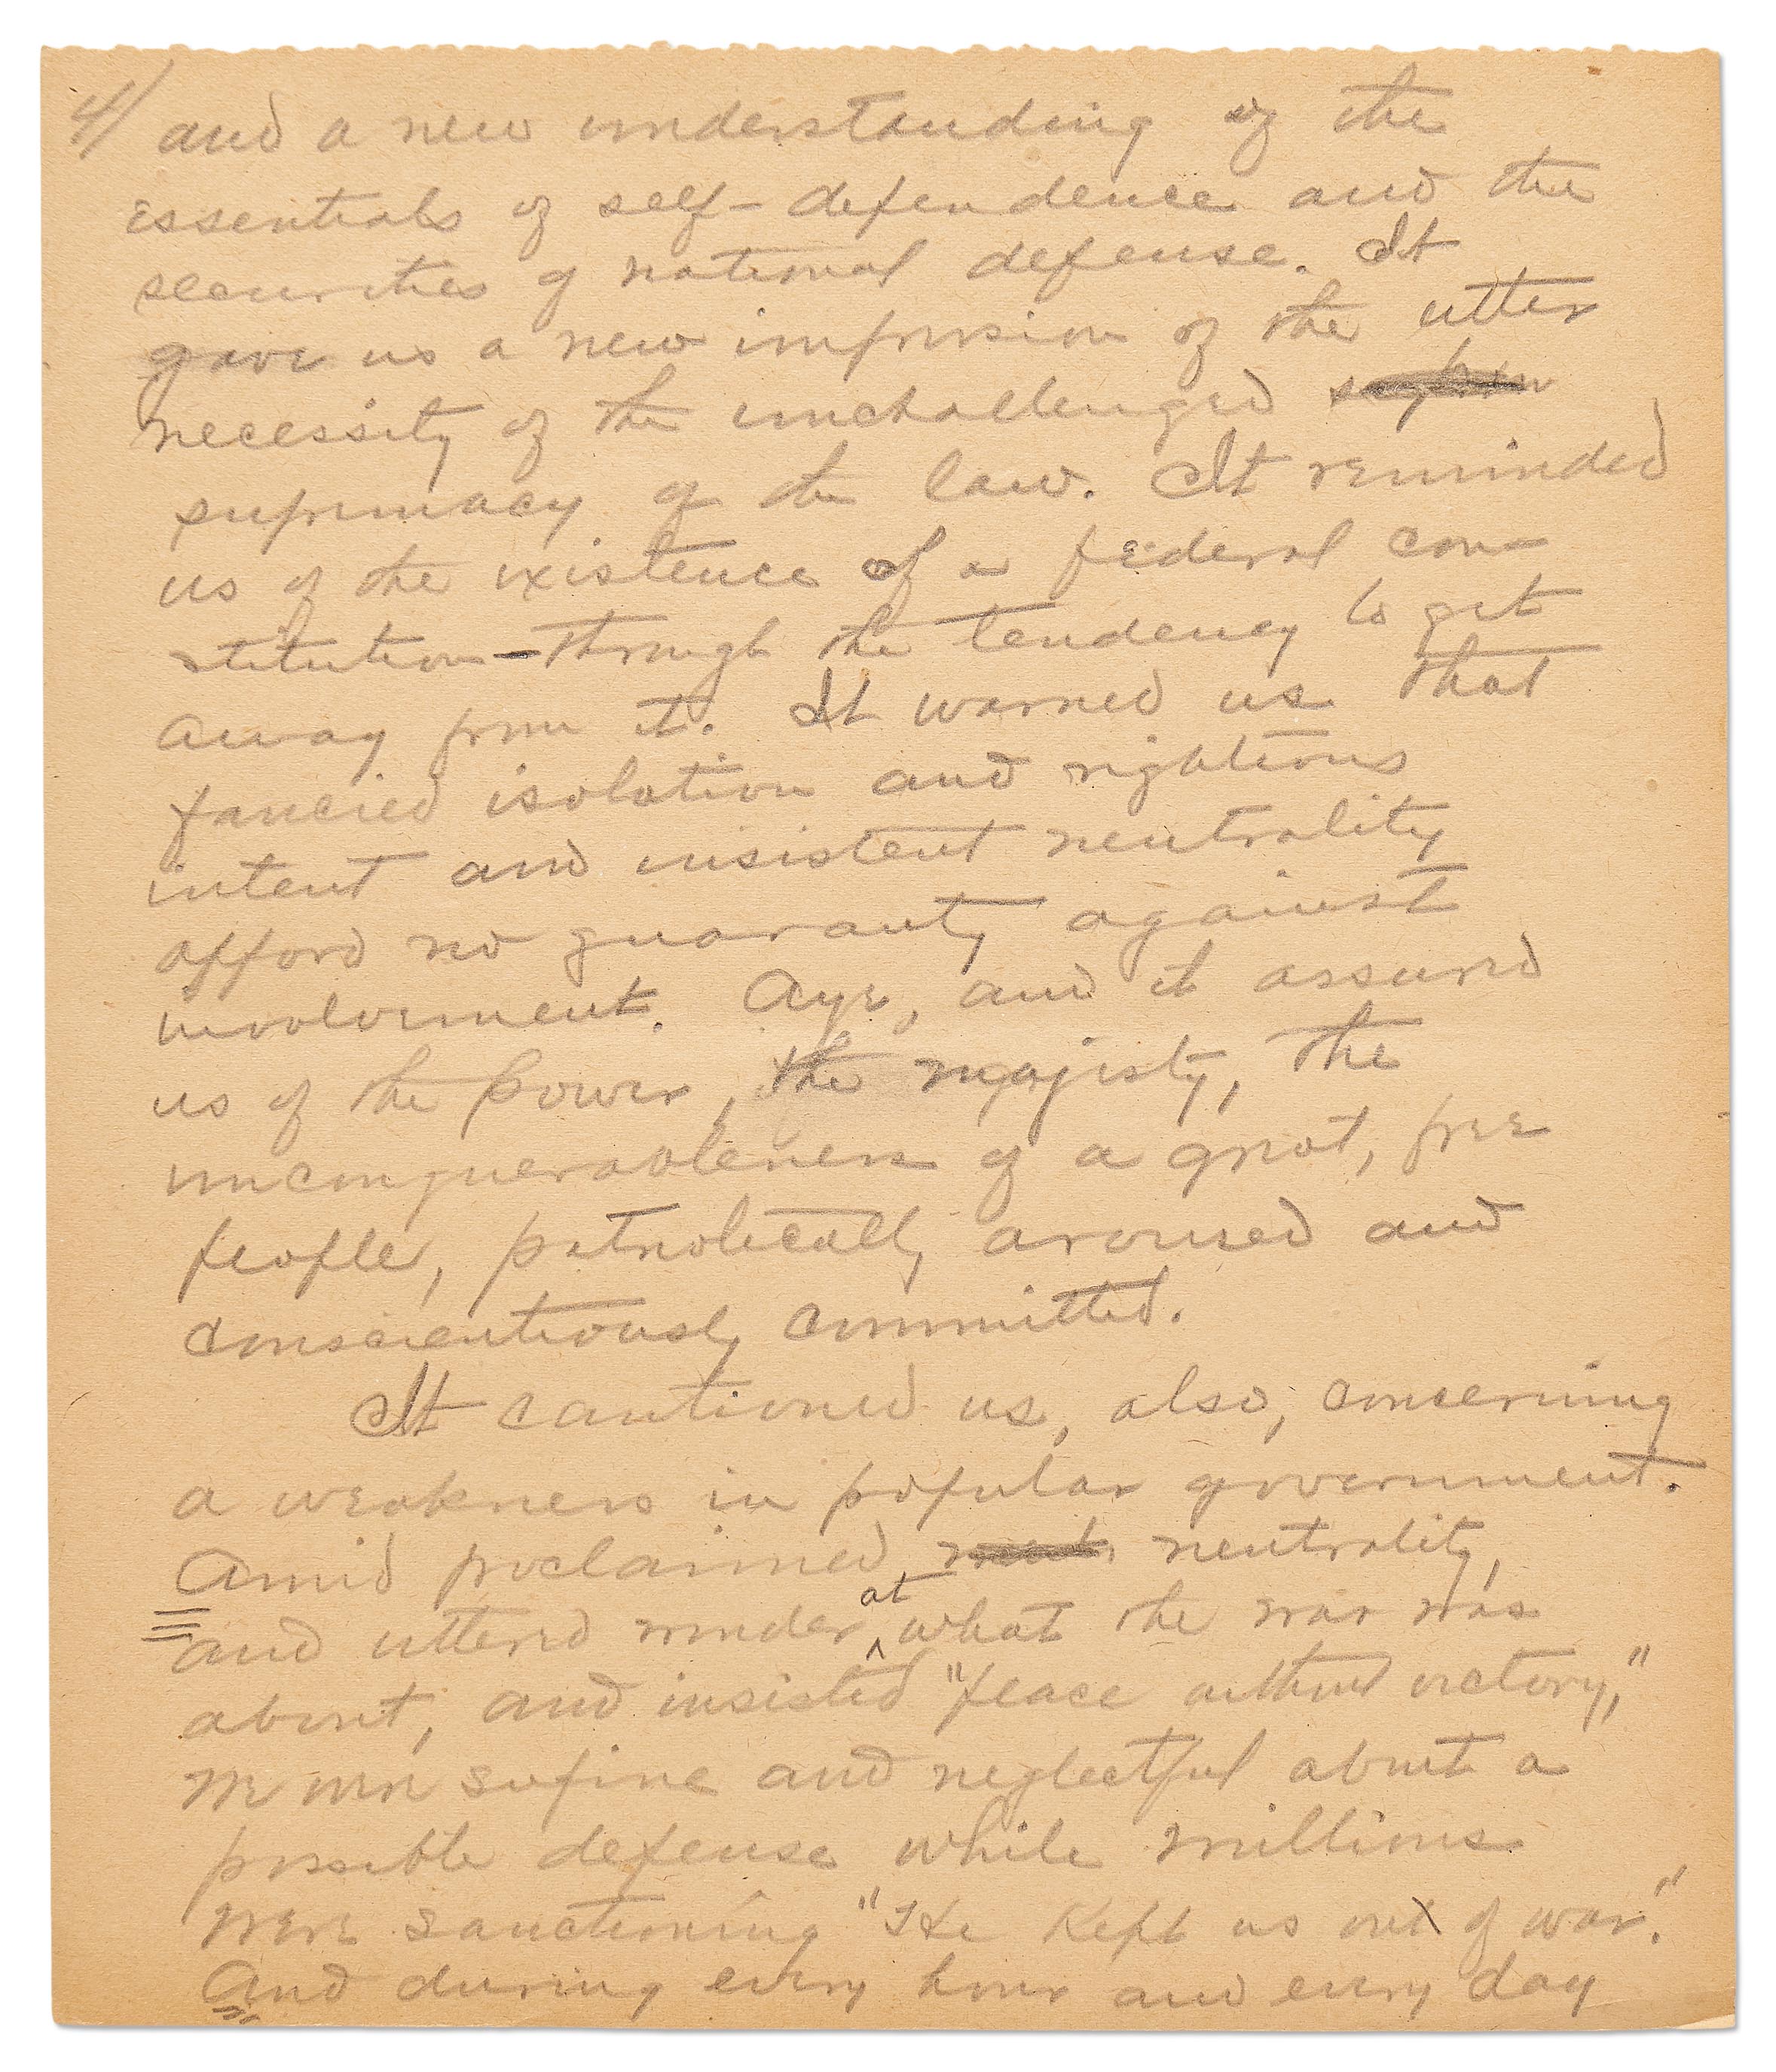 4/ and a new understanding of the
essentials of self-defendence and the
securities of national defense. It
gave us a new impression of the utter
necessity of the unchallenged
supremacy of the law. It reminded
us of the existence of a federal con-
stitution - through the tendency to get
away from it. It warned us that
fancied isolation and righteous
intent and insistent neutrality
afford no guaranty against
involvement. Aye, and it assured
us of the power, the majesty, the
unconquerableness of a great, free
people, patriotically aroused and
conscientiously committed.
It cautioned us, also, concerning
a weakness in popular government.
Amid proclaimed neutrality,
and uttered wonder at what the war was
about, and insisted "peace without victory,"
we were supine and neglectful about a
possible defense while millions
were sanctioning "He Kept us out of war."
And during every hour and every day